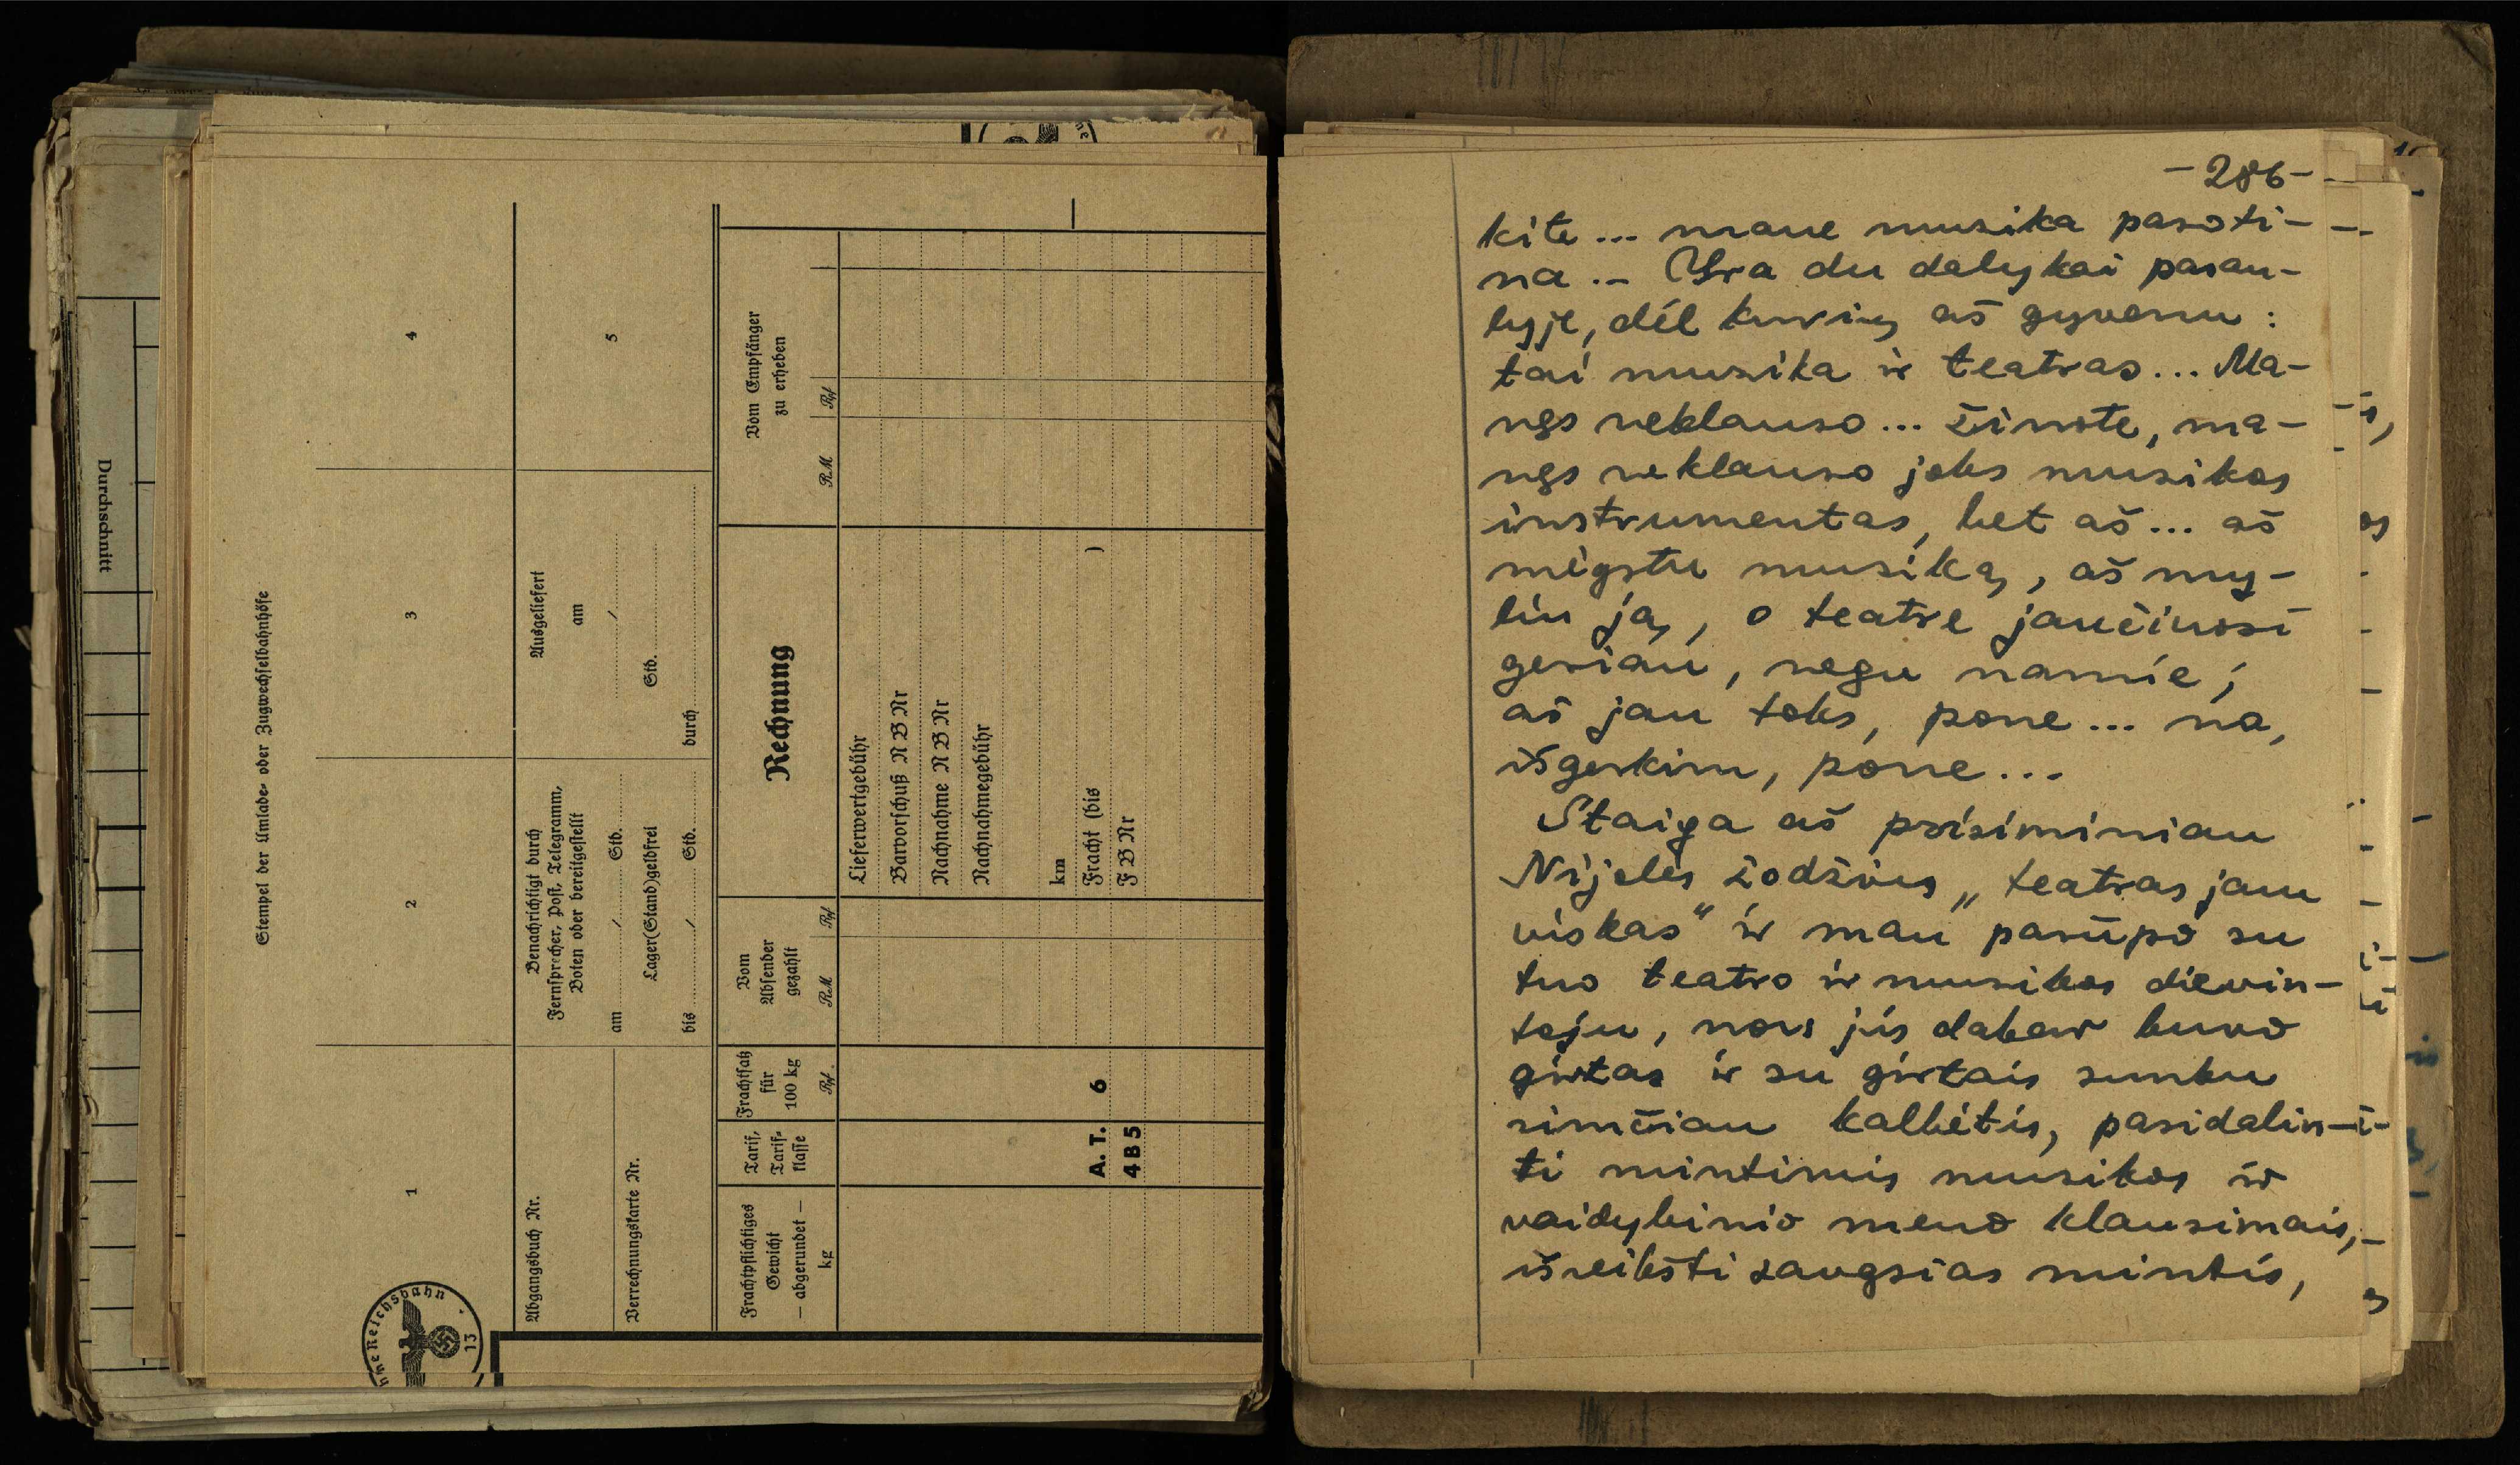 Durchschnitt
Stempel der Umlade- oder Zugwechselbahnhöfe
1
2
3
4
Abgangsbuch Nr.
Verrechnungskarte Nr.
Benachrichtigt durch
Fernsprecher, Post, Telegramm,
Boten oder bereitgestellt
am / Std.
Lager(Stand)geldfrei
bis / Std.
Ausgeliefert
am
/
Std.
durch
5
Frachtpflichtiges
Gewicht
— abgerundet —
kg
Tarif,
Tarif-
klasse
Frachtsatz
für
100 kg
Rpf.
Vom
Absender
gezahlt
RM Rpf
Rechnung
Vom Empfänger
zu erheben
RM Rpf
Lieferwertgebühr
Barvorschuß N B Nr
Nachnahme N B Nr
Nachnahmegebühr
km
A. T. 6 Fracht (bis )
4 B 5 F B Nr
hne Reichsbahn
13
-286-
kite... mane muzika pasoti-
na.- Yra du dalykai pasau-
lyje, dėl kurių aš gyvenu:
tai muzika ir teatras... Ma-
nęs neklauso... žinote, ma-
nęs neklauso joks muzikos
instrumentas, bet aš... aš
mėgstu muziką, aš my-
liu ją, o teatre jaučiuosi
geriau, negu namie;
aš jau toks, pone... na,
išgerkim, pone...
Staiga aš prisiminiau
Nijelės žodžius „teatras jam
viskas“ ir man parūpo su
tuo teatro ir muzikos dievin-
toju, nors jis dabar buvo
girtas ir su girtais sunku
rimčiau kalbėtis, pasidalin-
ti mintimis muzikos ir
vaidybinio meno klausimais,
išreikšti savąsias mintis,